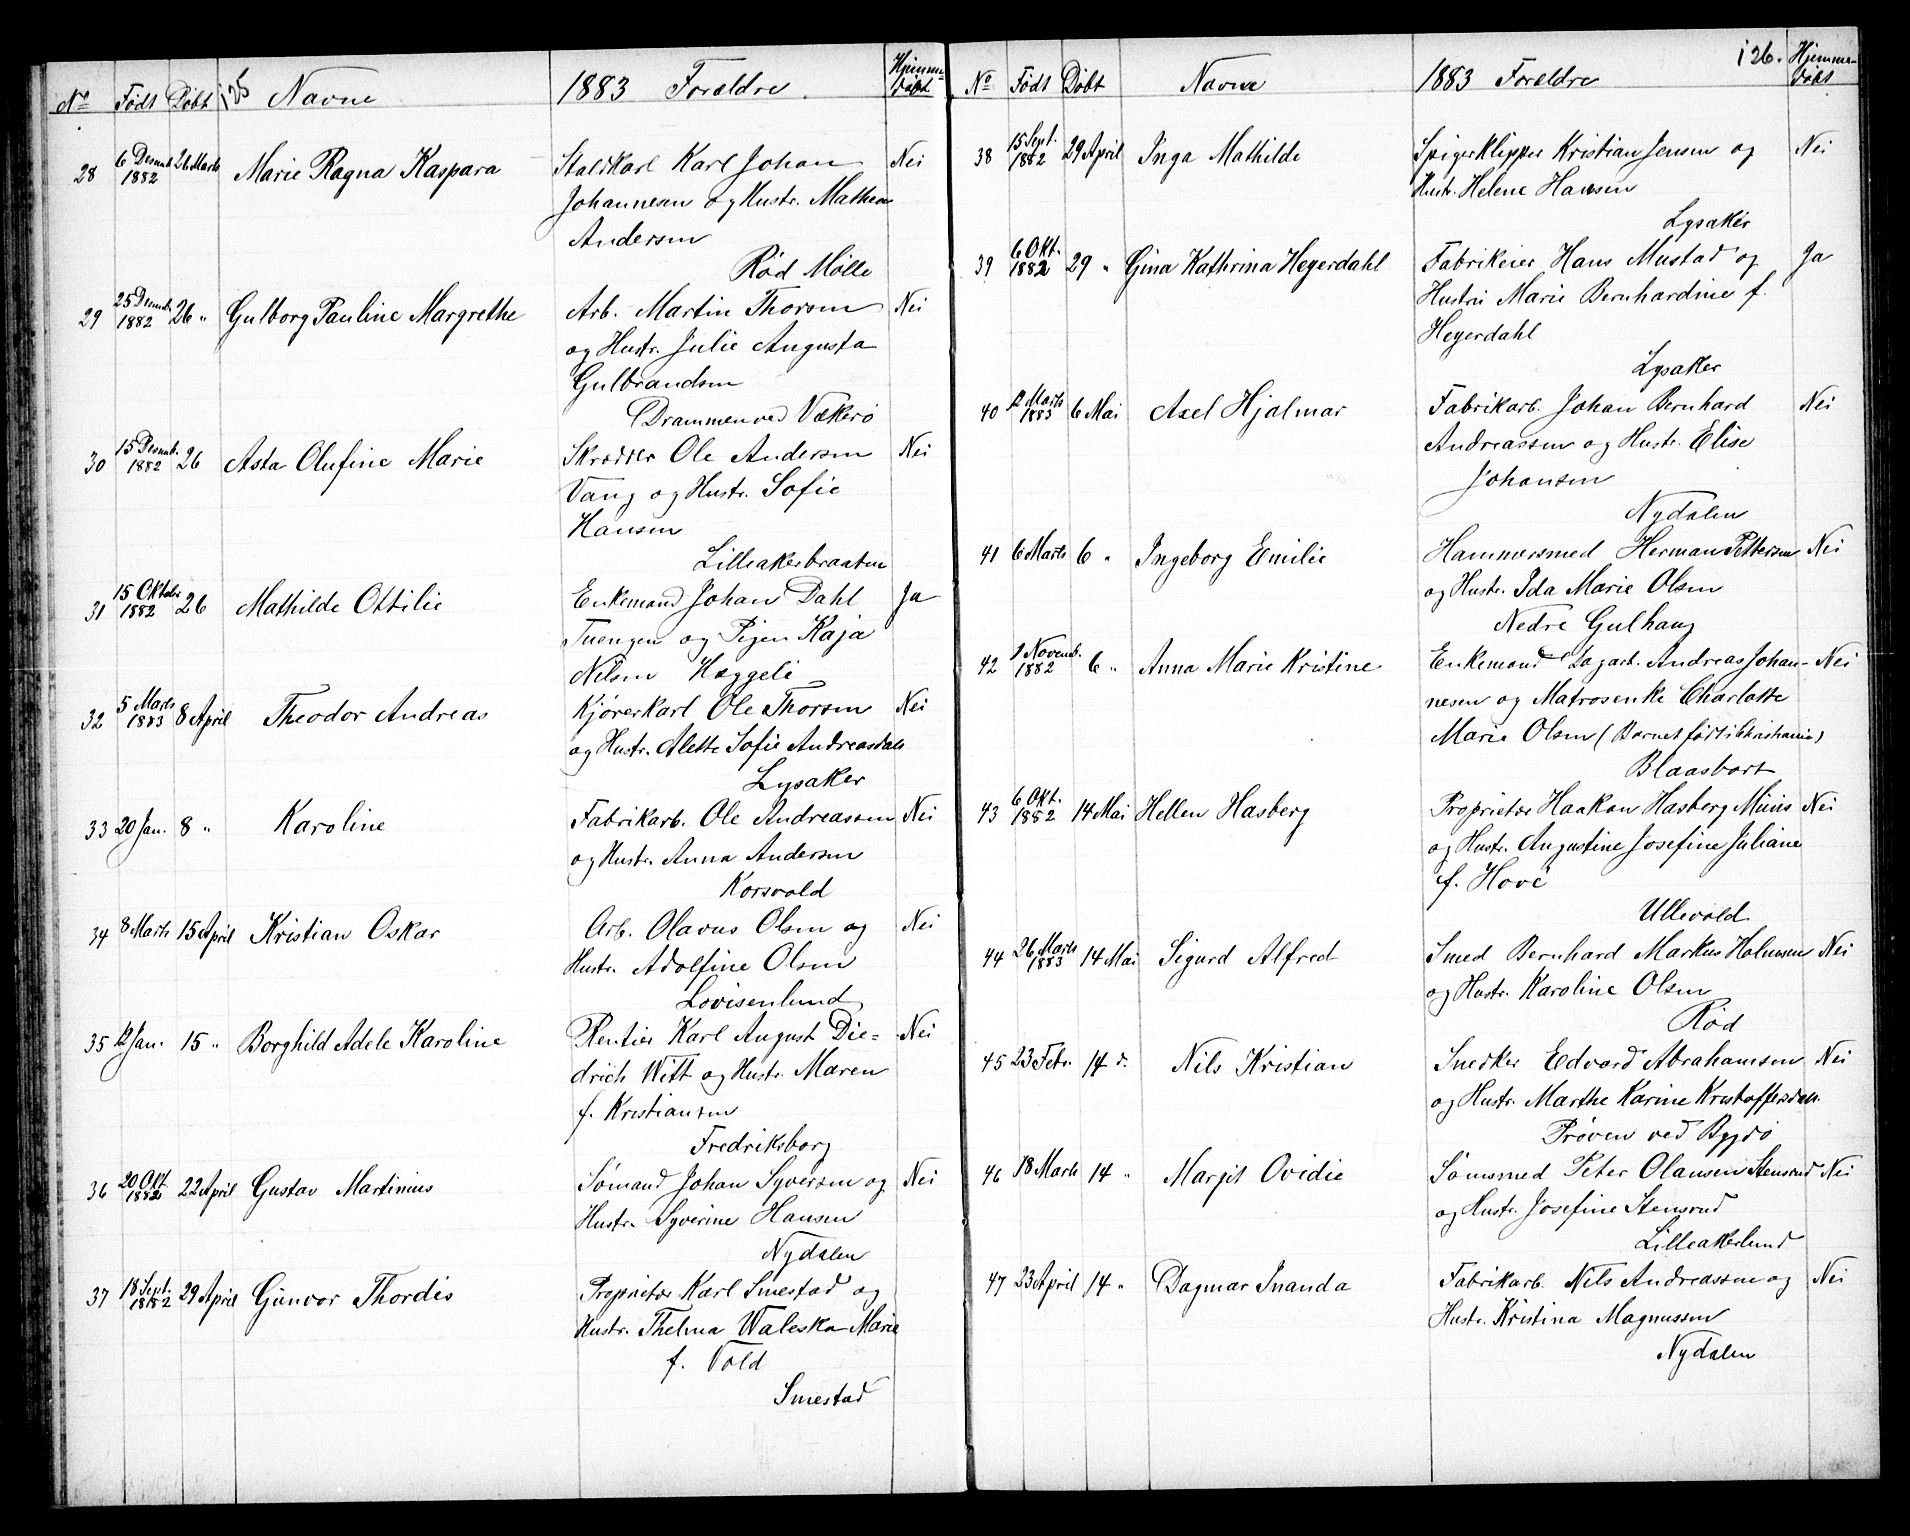 No Født Døbt 125 Navne 1883 Forældre. Hjemmedøbt
28 6 Desemb. 1882 26 Marts Marie Ragna Kaspara Staldkarl Karl Johan Nei
Johannesen og Hustr. Mathea
Andersen
Rød Mølle
29 25 Desemb. 1882 26 " Gulborg Pauline Margrethe Arb. Martin Thorsen Nei
og Hustr. Julie Augusta
Gulbrandsen
Drammenved Vækerø
30 15 Desemb. 1882 26 Asta Olufine Marie Skrædder Ole Andersen Nei
Vang og Hustr. Sofie
Hansen
Lilleakerbraaten
31 15 Oktober 1882 26 Mathilde Ottilie Enkemand Johan Dahl Ja
Tuengen og Pigen Kaja
Nilsen Hæggeli
32 5 Marts 1883 8 April Theodor Andreas Kjørerkarl Ole Thorsen Nei
og Hustr. Alette Sofie Andreasdatt.
Lysaker
33 20 Jan. 8 " Karoline Fabrikarb. Ole Andreassen Nei
og Hustr. Anna Andersen
Korsvold
34 8 Marts 15 April Kristian Oskar Arb. Olavus Olsen og Nei
Hustr. Adolfine Olsen
Lovisenlund
35 12 Jan. 15 " Borghild Adele Karoline Rentier Karl August Die= Nei
drich Witt og Hustr. Maren
f. Kristiansen
Fredriksborg
36 20 Okt. 1882 22 April Gustav Martinius Sømand Johan Syversen og Nei
Hustr. Syverine Hansen
Nydalen
37 18 Sept. 1882 29 April Gunvor Thordis Proprietær Karl Smestad og
Hustr. Thelma Waleska Marie
f. Vold
Smestad
No Født Døbt Navne 1883 Forældre 126. Hjemmedøbt
38 15 Sept. 1882 29 April Inga Mathilde Spigerklipper Kristian Jensen og Nei
Hustr. Helene Hansen
Lysaker
39 6 Okt. 1882 29 " Gina Kathrina Heyerdahl Fabrikeier Hans Mustad og Ja
Hustru Marie Bernhardine f.
Heyerdahl
Lysaker
40 12 Marts 1883 6 Mai Axel Hjalmar Fabrikarb. Johan Bernhard Nei
Andreassen og Hustr. Elise
Johansen
Nydalen
41 6 Marts 6 " Ingeborg Emilie Hammersmed Herman Pettersen Nei
og Hustr. Ida Marie Olsen
Nedre Gulhaug
42 9 Novemb. 1882 6 " Anna Marie Kristine Enkemand Dagarb. Andreas Johan- Nei
nesen og Matrosenke Charlotte
Marie Olsen (Barnet født i Christiania)
Blaasbort
43 6 Okt. 1882 14 Mai Hellen Hasberg Proprietær Haakon Hasberg Nei
og Hustr. Augustine Josefine Juliane
f. Hove
Ullevold
44 26 Marts 1883 14 Mai Sigurd Alfred Smed Bernhard Markus Holmsen Nei
og Hustr. Karoline Olsen
Rød
45 23 Febr. 14 d. Nils Kristian Snedker Edvard Abrahamsen Nei
og Hustr. Marthe Karine Kristoffersdatt.
Prøven ved Bygdø
46 18 Marts 14 " Margit Ovidie Sømsmed Peter Olausen Stensrud Nei
og Hustr. Josefine Stensrud
Lilleakerlund
47 23 April 14 " Dagmar Inanda Fabrikarb. Nils Andreassen og Nei
Hustr. Kristina Magnussen
Nydalen